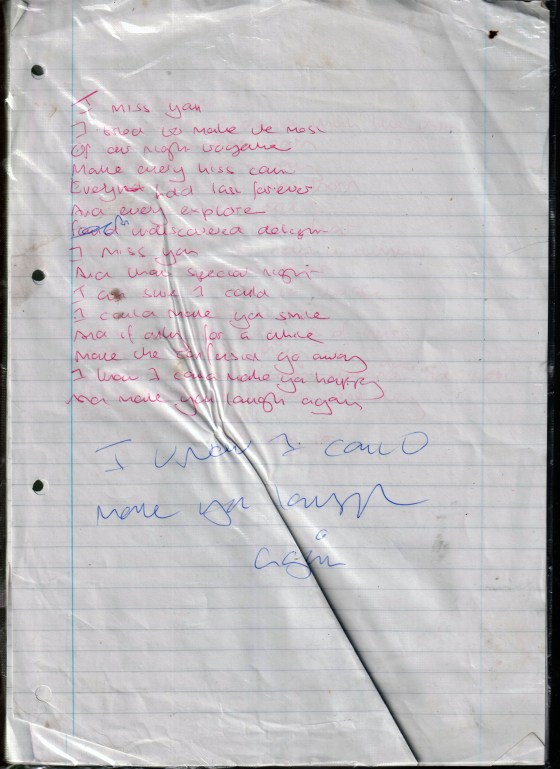 I miss you
I tried to make the most
Of our night together
Make every kiss
last forever
And every explore
undiscovered
I miss you
And that special night
I am sure I could
I could make you smile
And if only for a while
Make the confusion go away
I know I could make you happy
And make you laugh again
I know I could
make you laugh
again